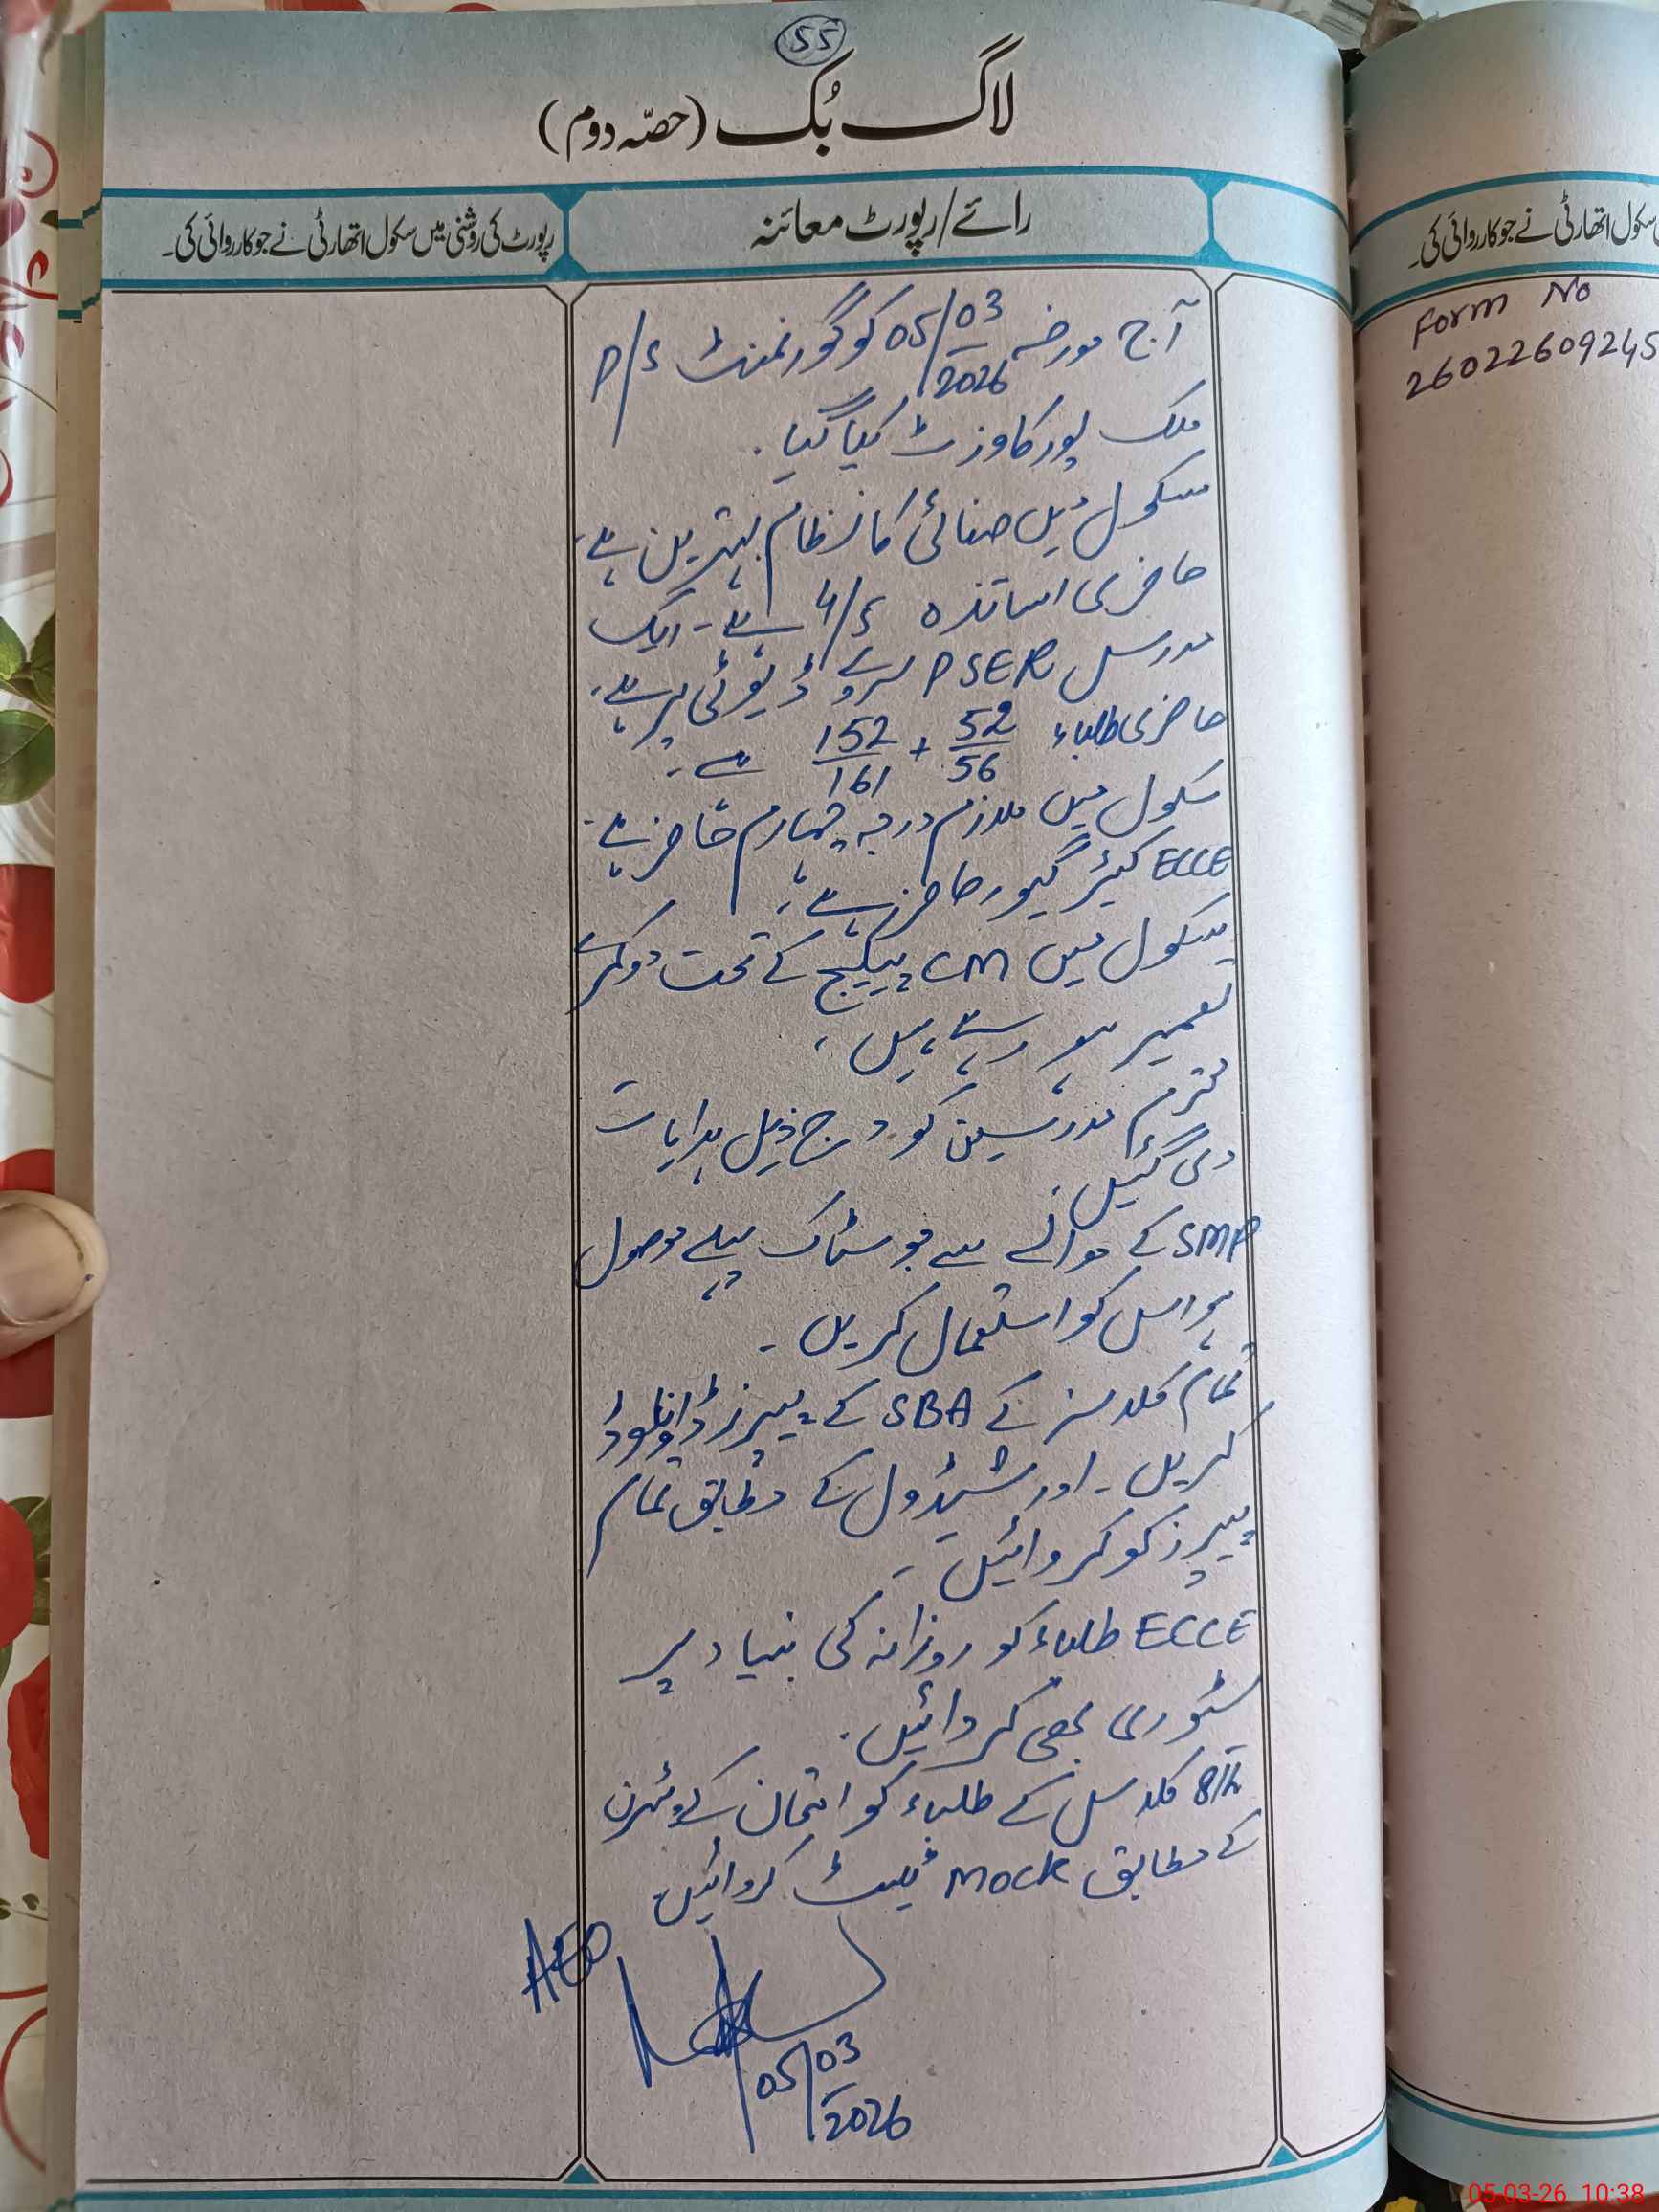 55
لاگ بُک (حصّہ دوم)
رائے/رپورٹ معائنہ
رپورٹ کی روشنی میں سکول اتھارٹی نے جو کارروائی کی۔
آج مورخہ 05/03/2026 کو گورنمنٹ P/S
ملک پور کا وزٹ کیا گیا۔
سکول میں صفائی کا نظام بہترین ہے۔
حاضری اساتذہ 4/5 ہے۔ ایک
مدرس PSER سروے ڈیوٹی پر ہے۔
حاضری طلباء 52/56 + 152/161 ہے۔
سکول میں ملازم درجہ چہارم حاضر ہے۔
ECCE کیئر گیور حاضر ہے۔
سکول میں CM پیکیج کے تحت دو کمرے
تعمیر ہو رہے ہیں۔
محترم مدرسین کو درج ذیل ہدایات
دی گئیں۔
SMP کے حوالے سے جو سٹاک پہلے موصول
ہو اس کو استعمال کریں۔
تمام کلاسز کے SBA کے پیپرز ڈاؤنلوڈ
کریں۔ اور شیڈول کے مطابق تمام
پیپرز کو کروائیں۔
ECCE طلباء کو روزانہ کی بنیاد پر
سٹوری بھی کروائیں۔
8th کلاس کے طلباء کو امتحان کے پیٹرن
کے مطابق Mock ٹیسٹ کروائیں
AEO
05/03/2026
سکول اتھارٹی نے جو کارروائی کی۔
Form No
26022609245
05-03-26 10:38